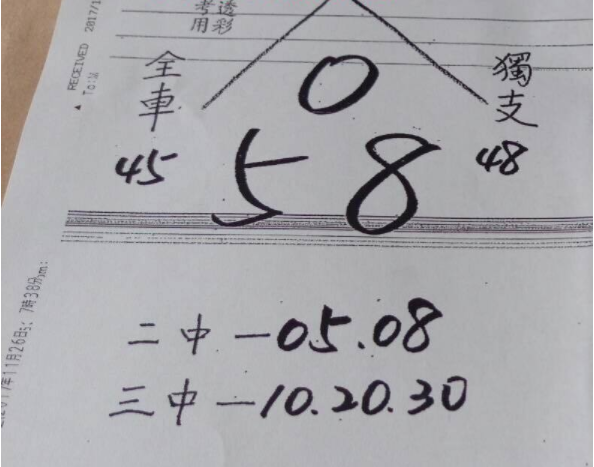 考透
用彩
全車
獨支
0
45
58
48
二中—05.08
三中—10.20.30
▲ RECEIVED 2017/1
To:M
2017年11月26日: 7時38分